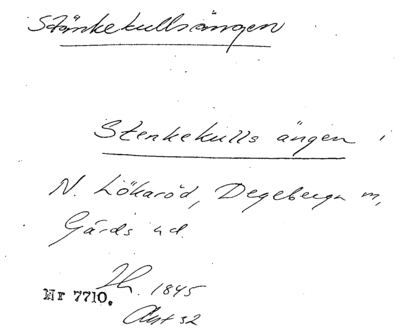 Stänkekullsängen
Stenkekulls ängen i
N. Lökaröd, Degeberga m,
Gärds hd.
1845
Nr 7710.
Akt 32